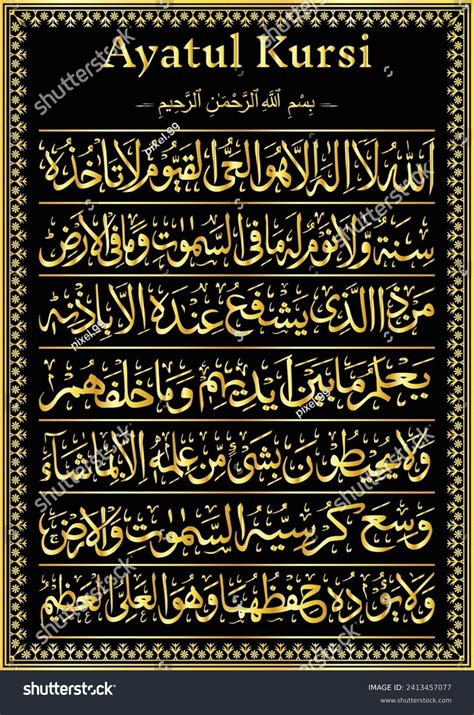 Ayatul Kursi
بِسْمِ اللَّهِ الرَّحْمَٰنِ الرَّحِيمِ
اَللّٰهُ لَا اِلٰهَ اِلَّا هُوَ الْحَىُّ الْقَيُّوْمُ لَا تَاْخُذُهٗ
سِنَةٌ وَّلَا نَوْمٌ لَهٗ مَا فِى السَّمٰوٰتِ وَمَا فِى الْاَرْضِ
مَنْ ذَا الَّذِىْ يَشْفَعُ عِنْدَهٗ اِلَّا بِاِذْنِهٖ
يَعْلَمُ مَا بَيْنَ اَيْدِيْهِمْ وَمَا خَلْفَهُمْ
وَلَا يُحِيْطُوْنَ بِشَىْءٍ مِّنْ عِلْمِهٖ اِلَّا بِمَا شَآءَ
وَسِعَ كُرْسِيُّهُ السَّمٰوٰتِ وَالْاَرْضَ
وَلَا يَئُوْدُهٗ حِفْظُهُمَا وَهُوَ الْعَلِىُّ الْعَظِيْمُ
shutterstock
pixel.99
shutterstock
IMAGE ID: 2413457077
www.shutterstock.com